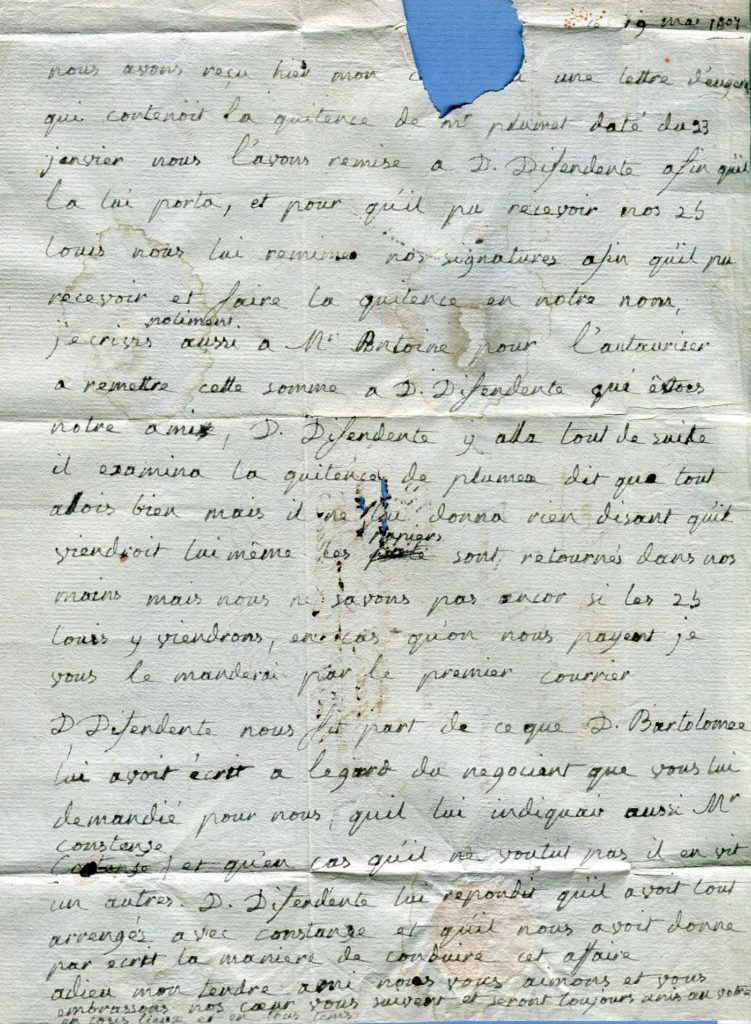 ce 19 mai 1807
nous avons reçu hier mon une lettre d'eugen
qui contenoit la quitence de mr plumet daté du 23
janvier nous l'avons remise a D. Difendente afin qu'il
la lui porta, et pour qu'il pu recevoir nos 25
louis nous lui remimes nos signatures afin qu'il pu
recevoir et faire la quitence en notre nom,
poliment
j'ecrivis aussi a Mr Antoine pour l'autauriser
a remettre cette somme a D. Difendente qui êtoes
notre ami, D. Difendente y alla tout de suite
il examina la quitence de plumex dit que tout
alois bien mais il ne lui donna rien disant qu'il
papiers
viendroit lui même les sont retournés dans nos
mains mais nous ne savons pas encor si les 25
louis y viendrons, en cas qu'on nous payent je
vous le manderai par le premier courrier
D Difendente nous fit part de ce que D. Bartolomee
lui avoit écrit a legard du negociant que vous lui
demandié pour nous, quil lui indiquair aussi Mr
constense
et qu'en cas qu'il ne voulut pas il en vit
un autres. D. Difendente lui repondit qu'il avoit tout
arrengés avec constanse et qu'il nous avoit donne
par ecrit la maniere de conduire cet affaire
adieu mon tendre ami nous vous aimons et vous
embrassons nos cœur vous suivent et seront toujours unis au votre
en tous lieux et en tous tems